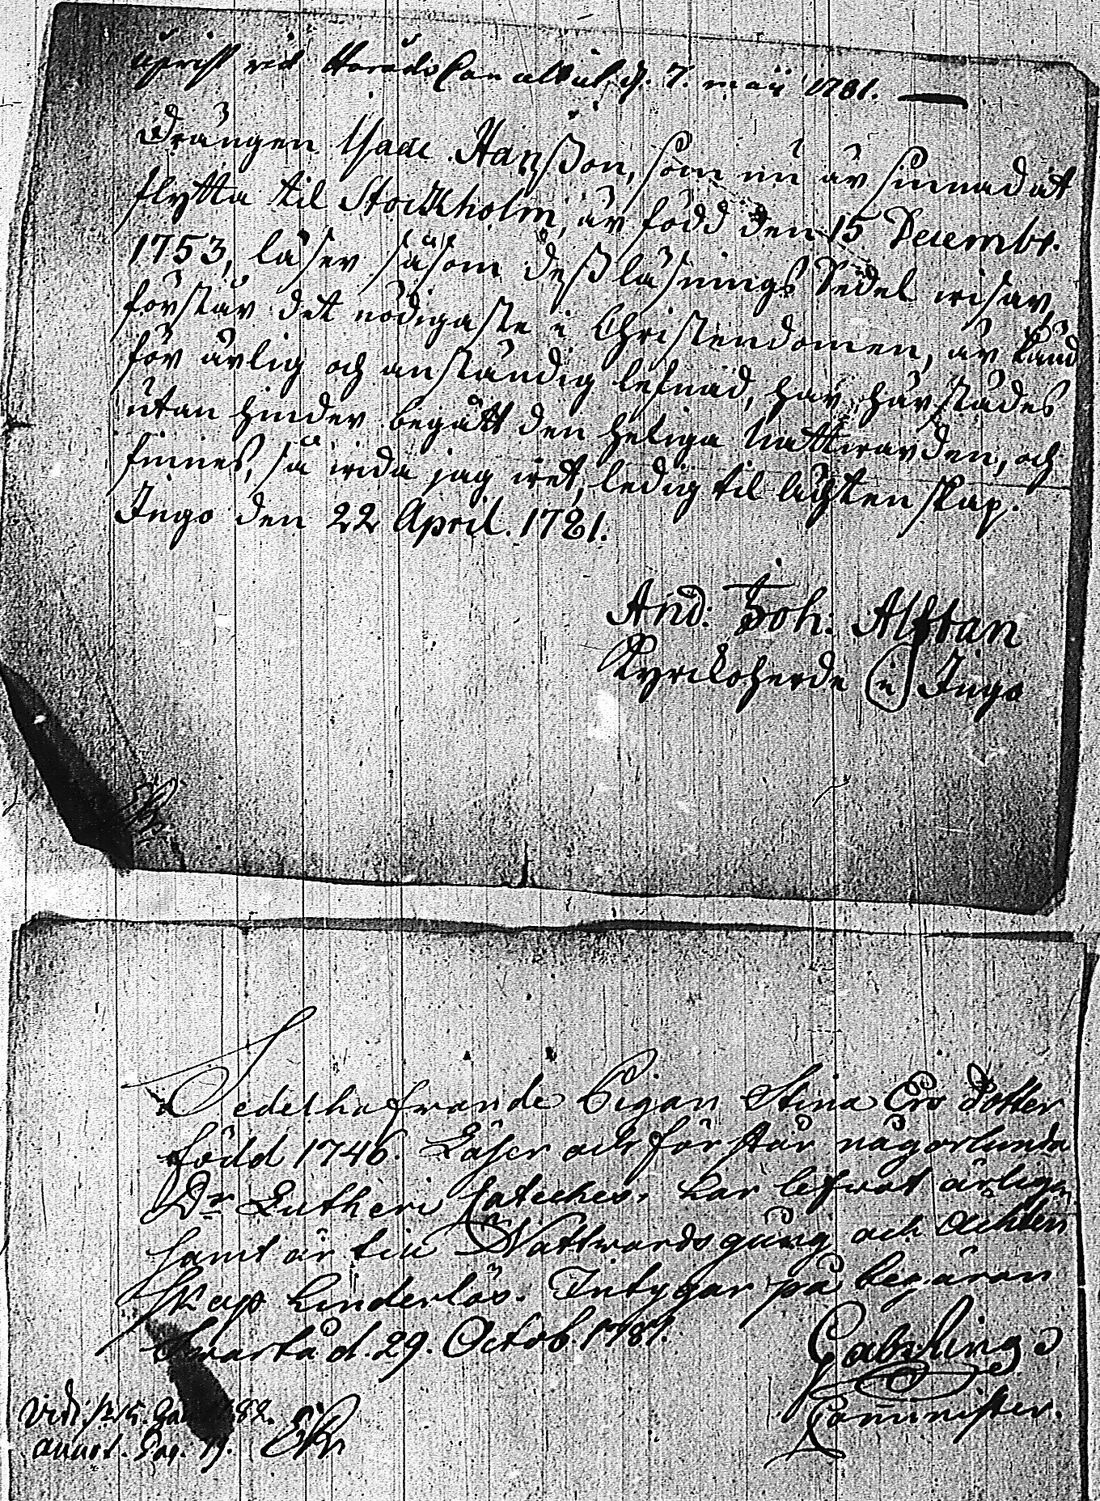 vid d. 7. maij 1781.
Drängen Isaac Hanßon, som nu är sinnad at
flytta til Stockholm, är född den 15 Decembr.
1753, läser såsom deß läsnings Sedel wisar,
förstår det nödigaste i Christendomen, är känd
för ärlig och anständig lefnad, har härstädes
utan hinder begått den heliga Nattwarden, och
finnes, så wida jag wet, ledig til ächtenskap.
Ingo den 22 April. 1781.
And: Joh: Alftan
Kyrkoherde i Ingo
Sedelhafvande Pigan Stina Ers dotter
född 1746. Läser och förstår någorlunda
Dr Lutheri Cateches, har lefwat ärligen
samt är till Nattwardsgång och Ächten
skap hinderlös. Intygar på begäran
d. 29. Octob. 1781.
Comminister.
Vidi 82.
annot. Pag. 19.